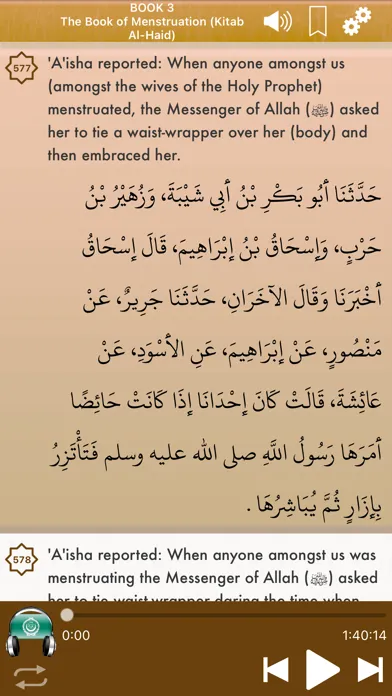 BOOK 3
The Book of Menstruation (Kitab
Al-Haid)
577
'A'isha reported: When anyone amongst us
(amongst the wives of the Holy Prophet)
menstruated, the Messenger of Allah (ﷺ) asked
her to tie a waist-wrapper over her (body) and
then embraced her.
حَدَّثَنَا أَبُو بَكْرِ بْنُ أَبِي شَيْبَةَ، وَزُهَيْرُ بْنُ
حَرْبٍ، وَإِسْحَاقُ بْنُ إِبْرَاهِيمَ، قَالَ إِسْحَاقُ
أَخْبَرَنَا وَقَالَ الآخَرَانِ، حَدَّثَنَا جَرِيرٌ، عَنْ
مَنْصُورٍ، عَنْ إِبْرَاهِيمَ، عَنِ الأَسْوَدِ، عَنْ
عَائِشَةَ، قَالَتْ كَانَ إِحْدَانَا إِذَا كَانَتْ حَائِضًا
أَمَرَهَا رَسُولُ اللَّهِ صلى الله عليه وسلم فَتَأْتَزِرُ
بِإِزَارٍ ثُمَّ يُبَاشِرُهَا .
578
'A'isha reported: When anyone amongst us was
menstruating the Messenger of Allah (ﷺ) asked
her to tie waist-wrapper during the time when
0:00
1:40:14